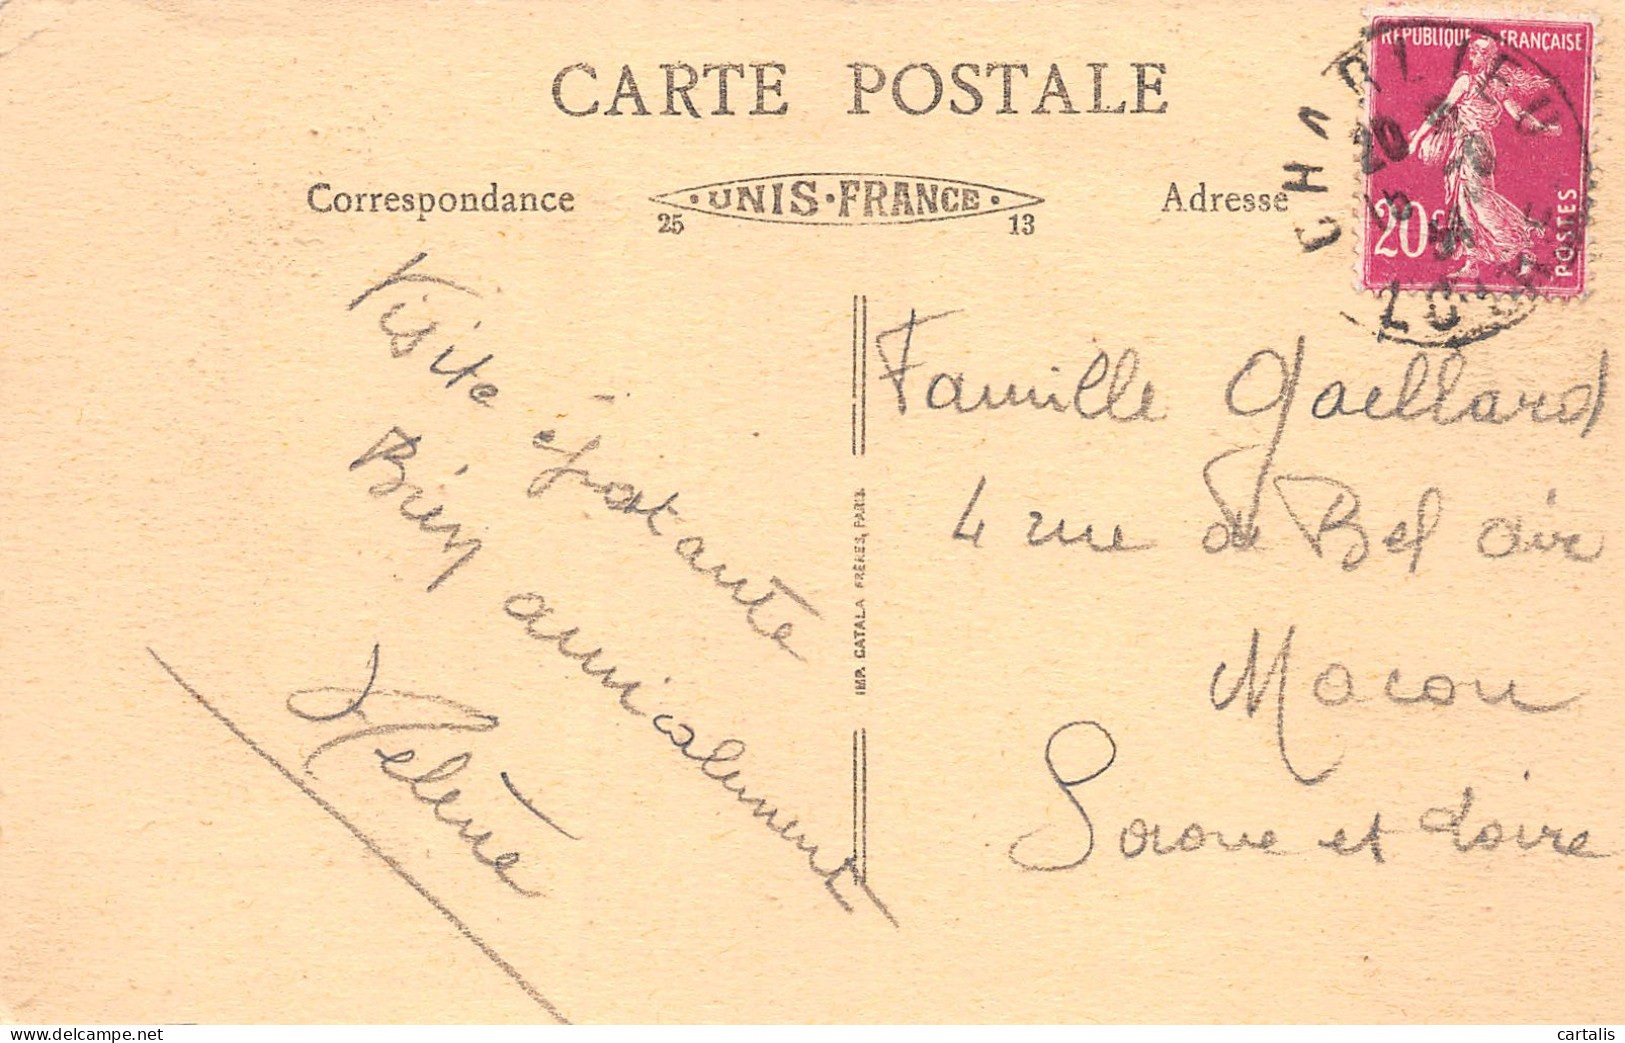 CARTE POSTALE
Correspondance
UNIS·FRANCE
25
13
Adresse
RÉPUBLIQUE FRANÇAISE
20c
POSTES
CHARLIEU
LOIRE
Visite épatante
Bien amicalement
Helène
IMP. CATALA FRÈRES, PARIS
Famille Gaellard
4 rue de Bel air
Macon
Saone et Loire
delcampe.net
cartalis